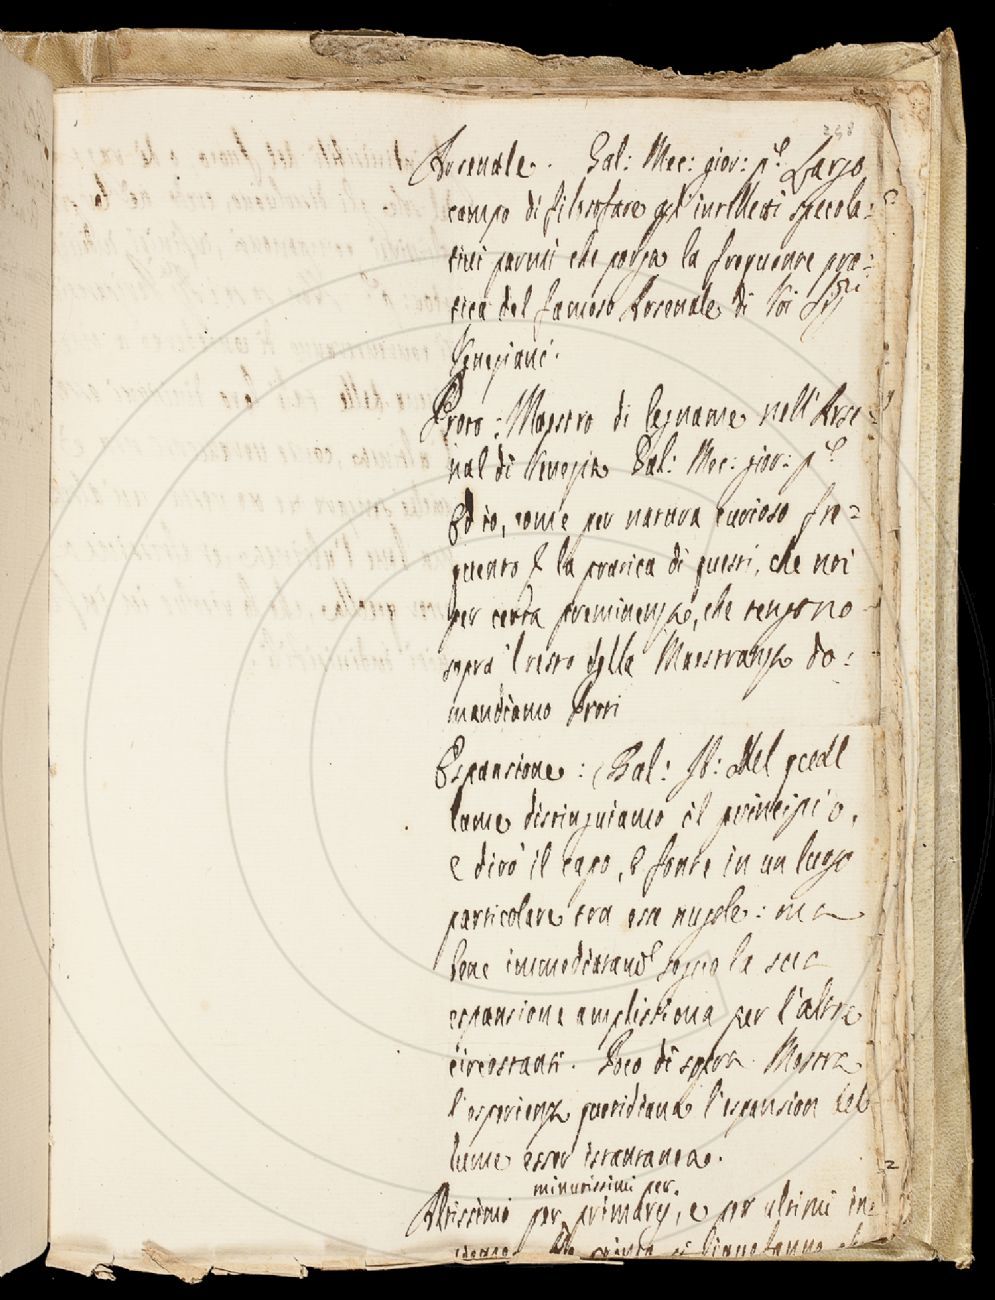 238
Arsenale. Gal: Mec: gior: p.º Largo
campo di filosofare agl'intelletti specola=
tivi parmi che porga la frequente pra=
tica del famoso Arsenale di Voi Sig.ri
Veneziani.
Proto: Maestro di legname nell'Arse=
nal di Venezia Gal: Mec: gior: p.º
Ed io, come per natura curioso fre=
quento la pratica di questi, che noi
per certa preminenza, che tengono
sopra 'l resto della Maestranza do=
mandiamo Proti
Espansione: Gal: Nel
lame distinguiamo il principio,
e dirò il capo, e fonte in un luogo
particolare tra esa nugole: ma
bene immediatam.e segue la sua
espansione amplissima per l'altre
circostanti. Poco di sopra. Mostra
l'esperienza quotidiana l'espansion del
lume esser istantanea.
minutissimi per.
Altissimi per primary, e per ultimi in=